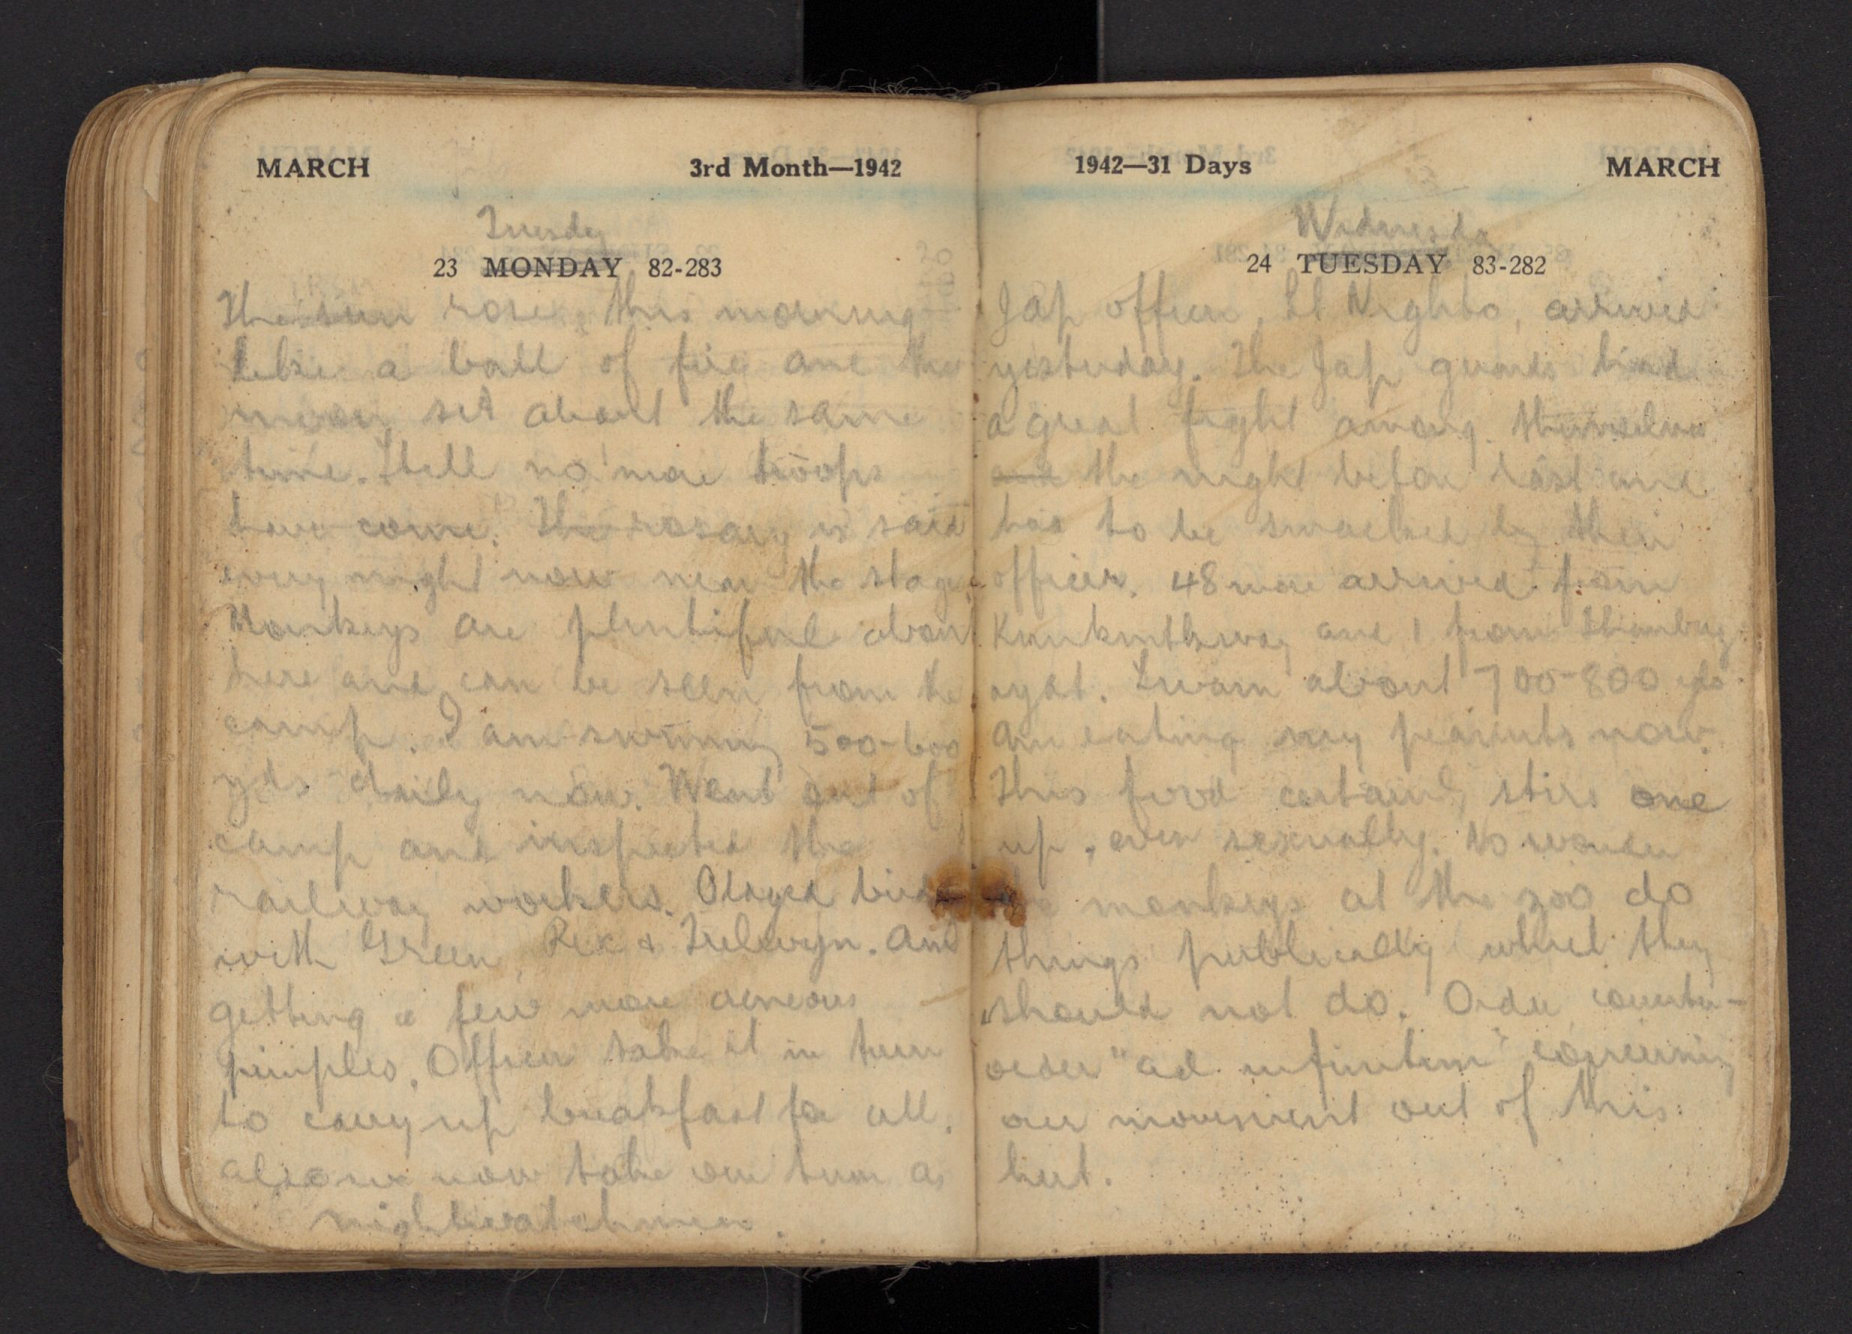 MARCH 3rd Month—1942
Tuesdy
23 MONDAY 82-283
The sun rose this morning
like a ball of fire and the
moon set about the same
time. Still no more troops
have come. The rosary is said
every night now near the stage
Monkeys are plentiful about
here and can be seen from the
camp. I am swimming 500-600
yds daily now. Went out of
camp and inspected the
railway workers. Played
with Green, Rex & Trelawyn. Am
getting a few more acneous
pimples. Officers take it in turn
to carry up breakfast for all.
also we now take our turn as
nightwatchmen.
1942—31 Days MARCH
Wednesday
24 TUESDAY 83-282
Jap officer, Lt Nighto, arrived
yesterday. The Jap guards had
a great fight among themselves
and the night before last and
has to be smacked by their
officer. 48 more arrived from
and 1 from
Swam about 700-800 yds.
Am eating my peanuts now.
This food certainly stirs one
up, even sexually. No wonder
the monkeys at the zoo do
things publically which they
should not do. Order, counter-
order "ad infinitum" concerning
our movement out of this
hut.